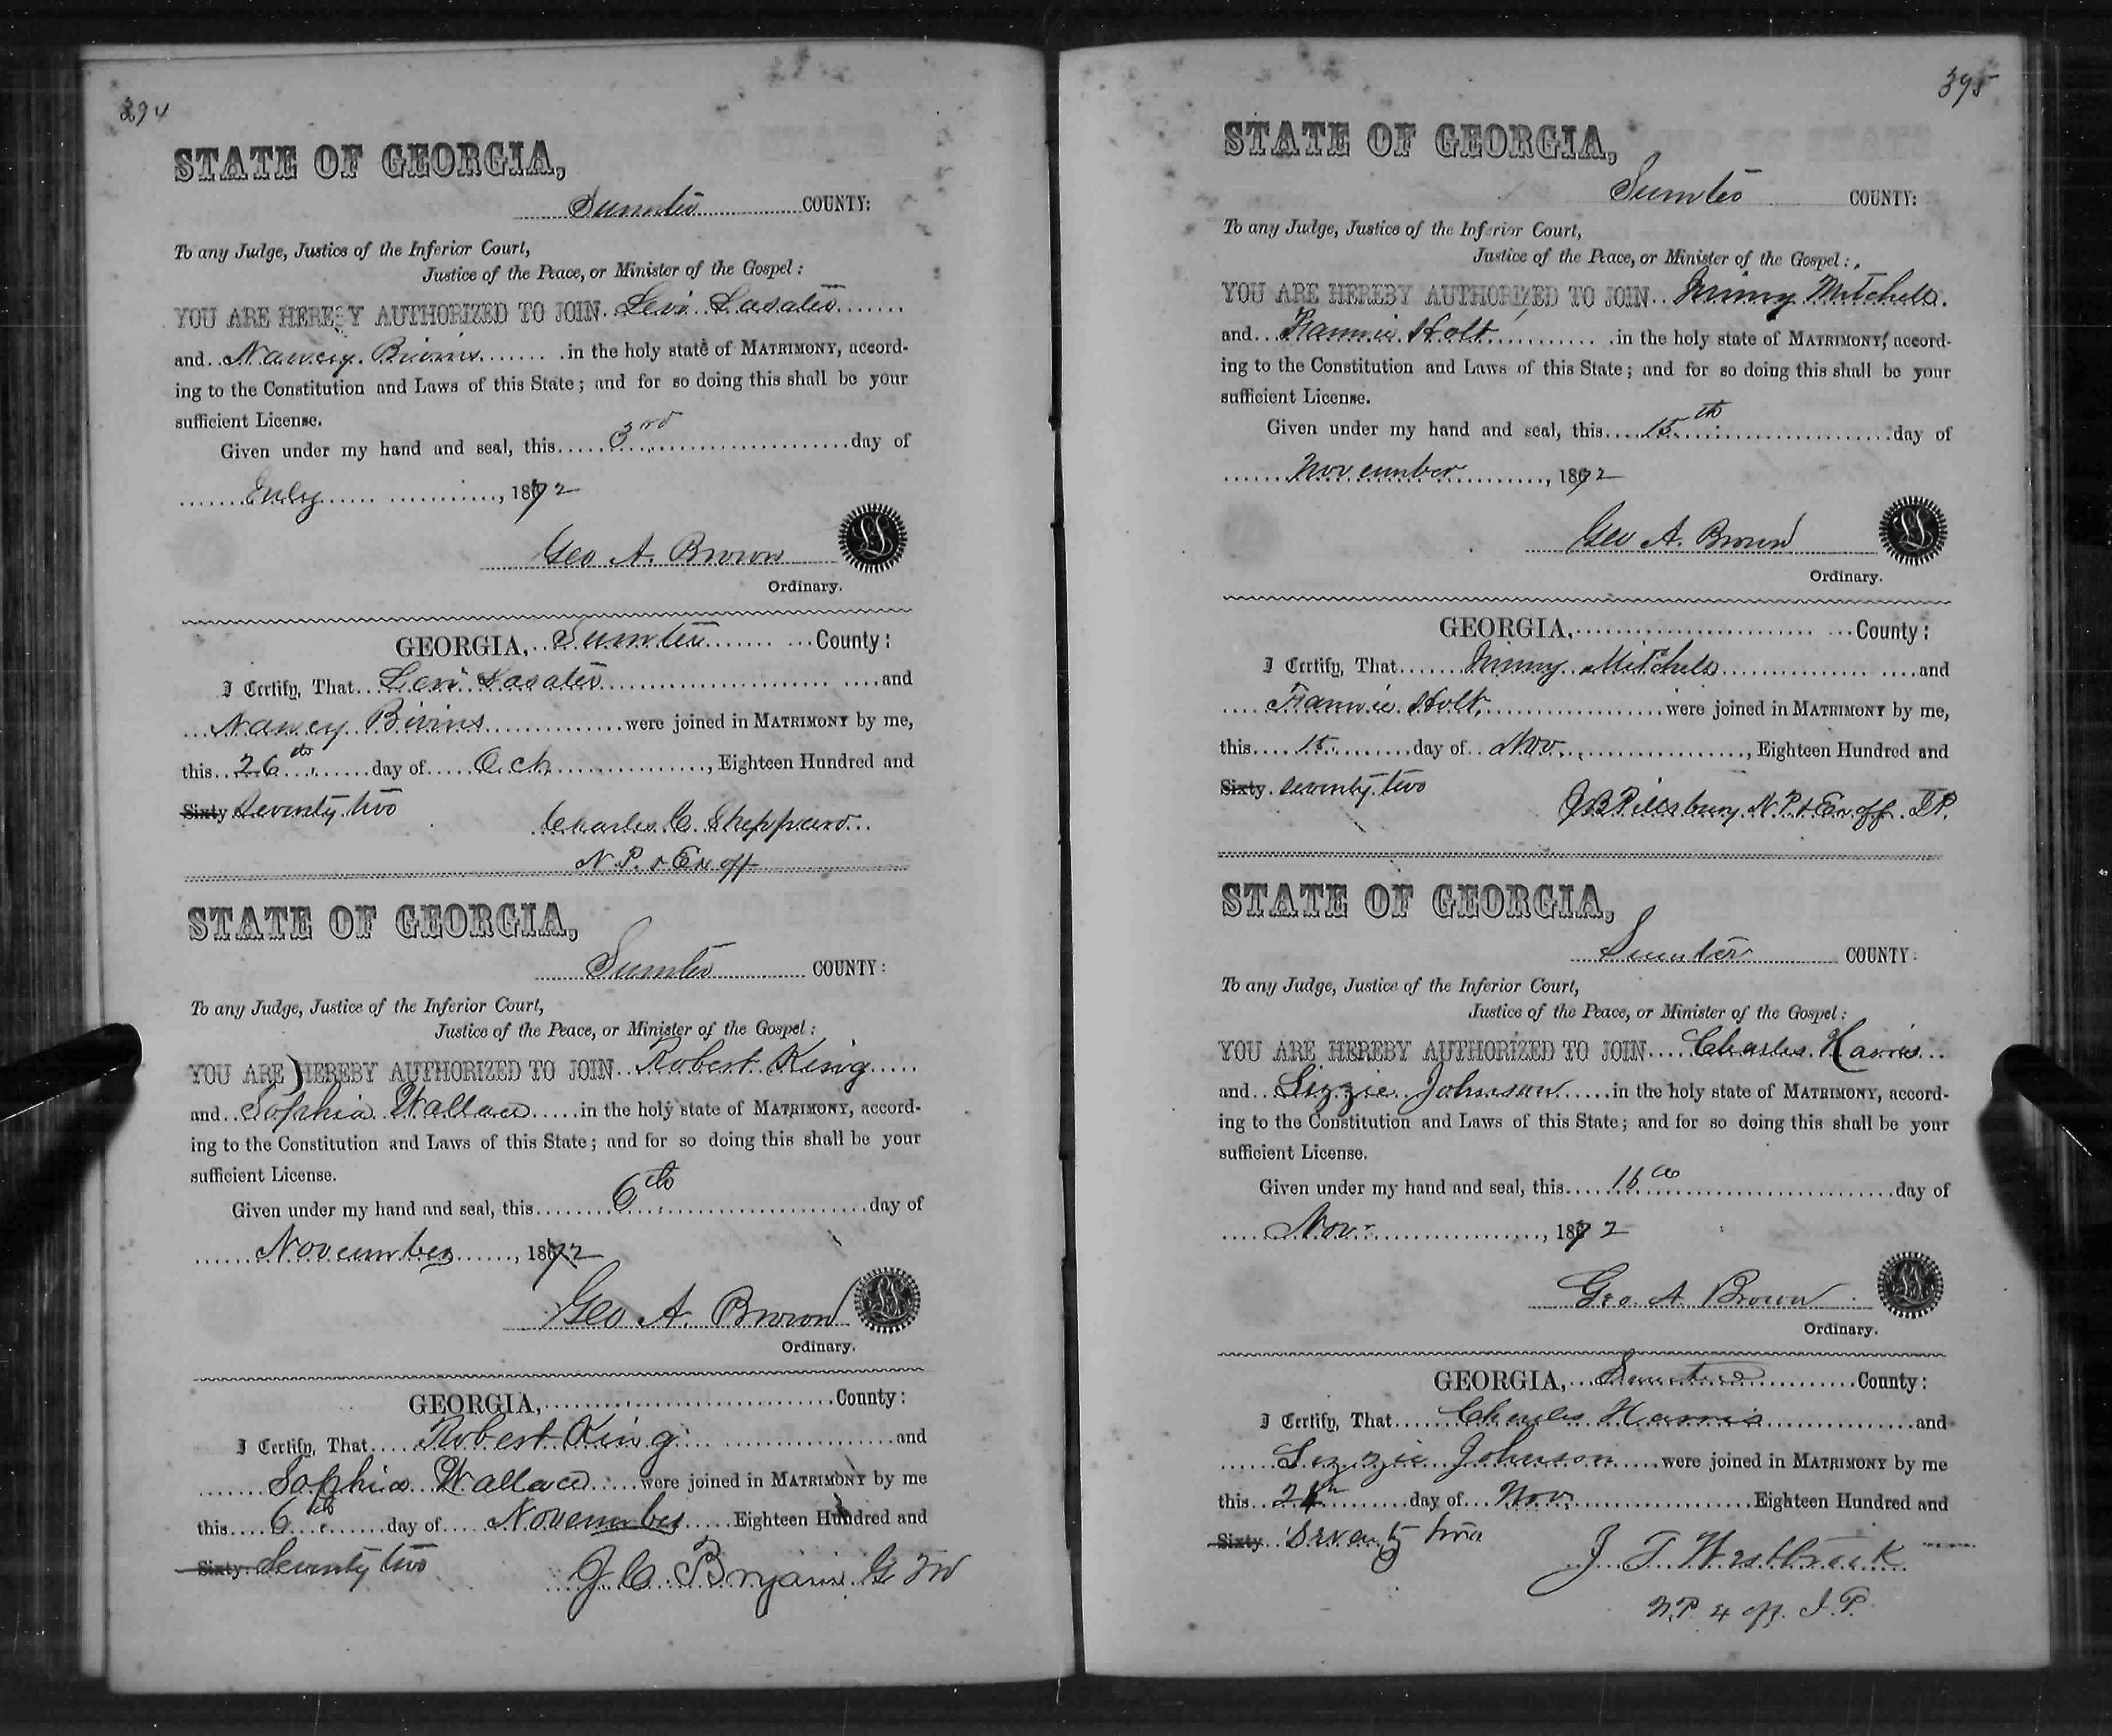 394
STATE OF GEORGIA,
Sumter COUNTY:
To any Judge, Justice of the Inferior Court,
Justice of the Peace, or Minister of the Gospel:
YOU ARE HEREBY AUTHORIZED TO JOIN Levi Lasater
and Nancy Bivins in the holy state of MATRIMONY, accord-
ing to the Constitution and Laws of this State; and for so doing this shall be your
sufficient License.
Given under my hand and seal, this 3rd day of
July, 1872
Geo A. Brown
LS
Ordinary.
GEORGIA, Sumter County:
I Certify, That Levi Lasater and
Nancy Bivins were joined in MATRIMONY by me,
this 26th day of Oct, Eighteen Hundred and
Sixty Seventy two
Charles C. Sheppard
N.P. & Ex off
STATE OF GEORGIA,
Sumter COUNTY:
To any Judge, Justice of the Inferior Court,
Justice of the Peace, or Minister of the Gospel:
YOU ARE HEREBY AUTHORIZED TO JOIN Robert King
and Sophia Wallace in the holy state of MATRIMONY, accord-
ing to the Constitution and Laws of this State; and for so doing this shall be your
sufficient License.
Given under my hand and seal, this 6th day of
November, 1872
Geo A. Brown
LS
Ordinary.
GEORGIA, County:
I Certify, That Robert King and
Sophia Wallace were joined in MATRIMONY by me
this 6th day of November Eighteen Hundred and
Sixty Seventy two
J. C. Bryan
395
STATE OF GEORGIA,
Sumter COUNTY:
To any Judge, Justice of the Inferior Court,
Justice of the Peace, or Minister of the Gospel:
YOU ARE HEREBY AUTHORIZED TO JOIN Mitchell
and Fannie Holt in the holy state of MATRIMONY, accord-
ing to the Constitution and Laws of this State; and for so doing this shall be your
sufficient License.
Given under my hand and seal, this 15th day of
November, 1872
Geo A. Brown
LS
Ordinary.
GEORGIA, County:
I Certify, That Mitchell and
Fannie Holt, were joined in MATRIMONY by me,
this 15 day of Nov., Eighteen Hundred and
Sixty seventy two
J B Pilsbury N.P. & Ex off. J.P.
STATE OF GEORGIA,
Sumter COUNTY:
To any Judge, Justice of the Inferior Court,
Justice of the Peace, or Minister of the Gospel:
YOU ARE HEREBY AUTHORIZED TO JOIN Charles Harris
and Lizzie Johnson in the holy state of MATRIMONY, accord-
ing to the Constitution and Laws of this State; and for so doing this shall be your
sufficient License.
Given under my hand and seal, this day of
Nov., 1872
Geo. A Brown
LS
Ordinary.
GEORGIA, Sumter County:
I Certify, That Charles Harris and
Lizzie Johnson were joined in MATRIMONY by me
this day of Nov. Eighteen Hundred and
Sixty Seventy two
J. T. Westbrook
N.P. & off. J.P.